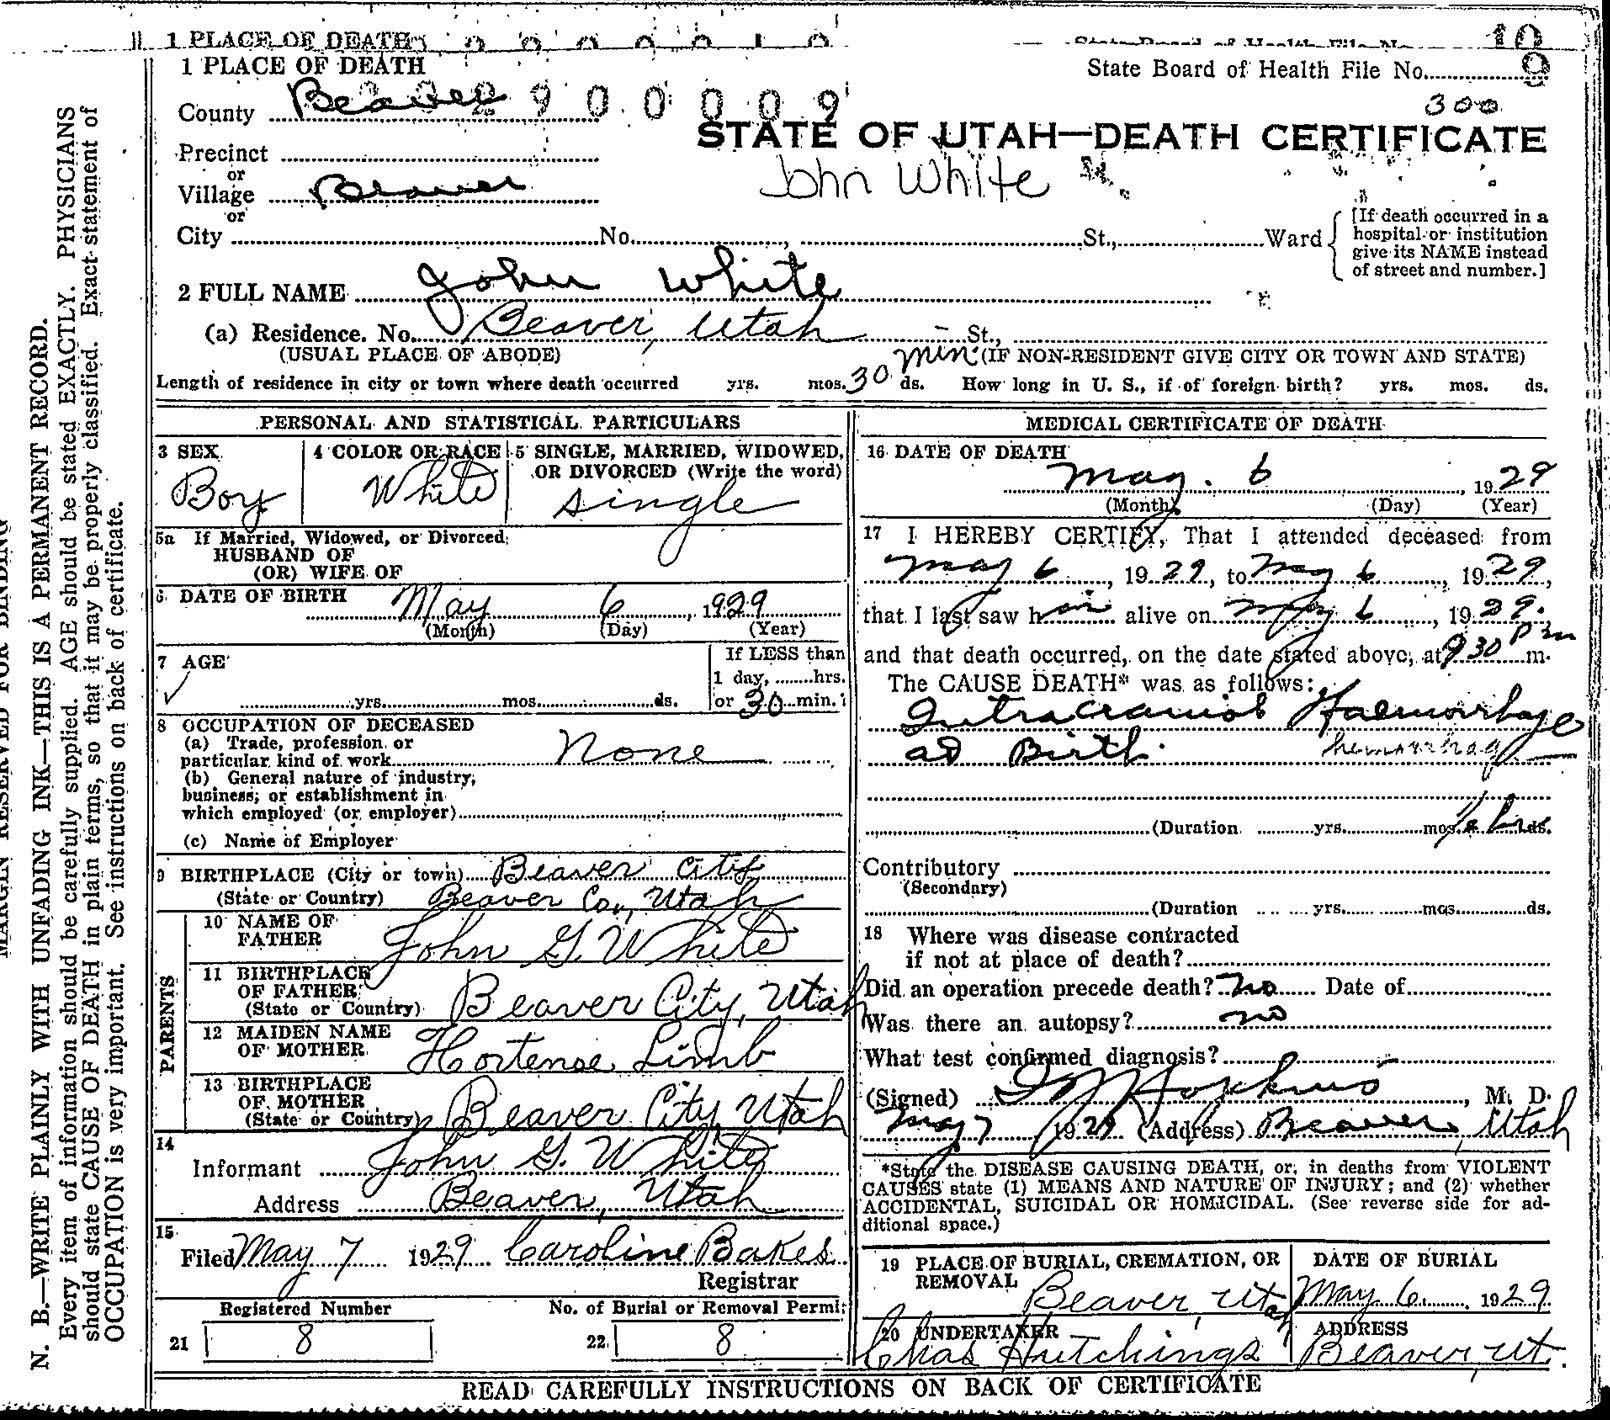 1 PLACE OF DEATH
State Board of Health File No. 10
1 PLACE OF DEATH
State Board of Health File No. 9
County Beaver 2900009
300
STATE OF UTAH—DEATH CERTIFICATE
Precinct
or
Village Beaver
John White
or
City No. , St., Ward
[If death occurred in a
hospital or institution
give its NAME instead
of street and number.]
2 FULL NAME John White
(a) Residence. No. Beaver, Utah - St.,
(USUAL PLACE OF ABODE) (IF NON-RESIDENT GIVE CITY OR TOWN AND STATE)
Length of residence in city or town where death occurred yrs. mos. 30 min. ds. How long in U. S., if of foreign birth? yrs. mos. ds.
PERSONAL AND STATISTICAL PARTICULARS
3 SEX
Boy
4 COLOR OR RACE
White
5 SINGLE, MARRIED, WIDOWED,
OR DIVORCED (Write the word)
single
5a If Married, Widowed, or Divorced
HUSBAND OF
(OR) WIFE OF
6 DATE OF BIRTH May 6, 1929
(Month) (Day) (Year)
7 AGE
yrs. mos. ds.
If LESS than
1 day, hrs.
or 30 min.
8 OCCUPATION OF DECEASED
(a) Trade, profession or
particular kind of work None
(b) General nature of industry,
business, or establishment in
which employed (or employer)
(c) Name of Employer
9 BIRTHPLACE (City or town) Beaver City
(State or Country) Beaver Co., Utah
PARENTS
10 NAME OF
FATHER John G. White
11 BIRTHPLACE
OF FATHER
(State or Country) Beaver City, Utah
12 MAIDEN NAME
OF MOTHER Hortense Limb
13 BIRTHPLACE
OF MOTHER
(State or Country) Beaver City, Utah
14
Informant John G. White
Address Beaver, Utah
15
Filed May 7 1929 Caroline Bakes
Registrar
Registered Number
21 8
No. of Burial or Removal Permit
22 8
MEDICAL CERTIFICATE OF DEATH
16 DATE OF DEATH
May. 6, 1929
(Month) (Day) (Year)
17 I HEREBY CERTIFY, That I attended deceased from
May 6, 1929, to May 6, 1929,
that I last saw him alive on May 6, 1929.
and that death occurred, on the date stated above, at 930 Pm m.
The CAUSE DEATH* was as follows:
Intracranial Haemorrhage
at Birth. hemorrhag
(Duration yrs. mos. 1/2 hr ds.
Contributory
(Secondary)
(Duration yrs. mos. ds.
18 Where was disease contracted
if not at place of death?
Did an operation precede death? No Date of
Was there an autopsy? no
What test confirmed diagnosis?
(Signed) Hopkins, M. D.
May 7 1929 (Address) Beaver, Utah
*State the DISEASE CAUSING DEATH, or, in deaths from VIOLENT
CAUSES state (1) MEANS AND NATURE OF INJURY; and (2) whether
ACCIDENTAL, SUICIDAL OR HOMICIDAL. (See reverse side for ad-
ditional space.)
19 PLACE OF BURIAL, CREMATION, OR
REMOVAL Beaver, Utah
DATE OF BURIAL
May 6, 1929
20 UNDERTAKER
Chas Hutchings
ADDRESS
Beaver, Ut.
READ CAREFULLY INSTRUCTIONS ON BACK OF CERTIFICATE
MARGIN RESERVED FOR BINDING
N. B.—WRITE PLAINLY WITH UNFADING INK—THIS IS A PERMANENT RECORD.
Every item of information should be carefully supplied. AGE should be stated EXACTLY. PHYSICIANS
should state CAUSE OF DEATH in plain terms, so that it may be properly classified. Exact statement of
OCCUPATION is very important. See instructions on back of certificate.